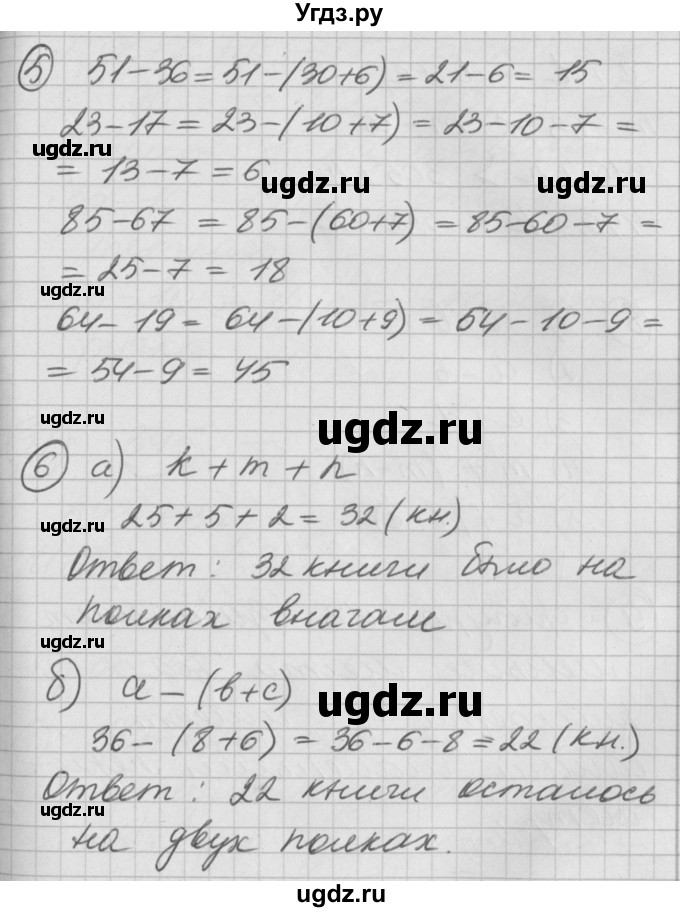 Угдз.ру
5 51-36=51-(30+6)=21-6=15
23-17=23-(10+7)=23-10-7=
ugdz.ru
=13-7=6
ugdz.ru ugdz.ru
85-67=85-(60+7)=85-60-7=
=25-7=18
ugdz.ru
64-19=64-(10+9)=54-10-9=
=54-9=45
ugdz.ru ugdz.ru
6 а) k+m+n
25+5+2=32(кн.)
ugdz.ru
Ответ: 32 книги было на
полках вначале
ugdz.ru
б) a-(b+c)
ugdz.ru
36-(8+6)=36-6-8=22(кн.)
Ответ: 22 книги осталось
ugdz.ru
на двух полках.
ugdz.ru